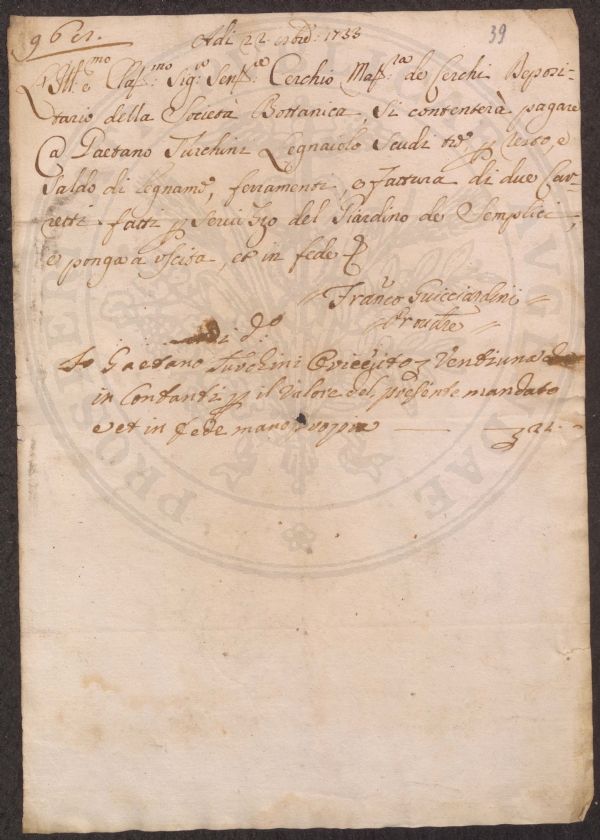 39
Adi 22 1733
L'Ill:mo e Claf:mo Sig:re Senf:e Cerchio Maf:ia de Cerchi Deposi-
tario della Società Bottanica, si contenterà pagare
a Gaetano Turchini Legnaiolo Scudi tre, p resto, e
Saldo di legname, ferramenti, e fattura di due Car-
retti fatti p servizzio del Giardino de Semplici,
e ponga a vscita, et in fede
Franco Guicciardini
Adi do
Io Gaetano Turchini O riceuto Ventiuna
in Contanti p il Valore del presente mandato
et in fede mano propia 21
PROSPERI AUGENDAE